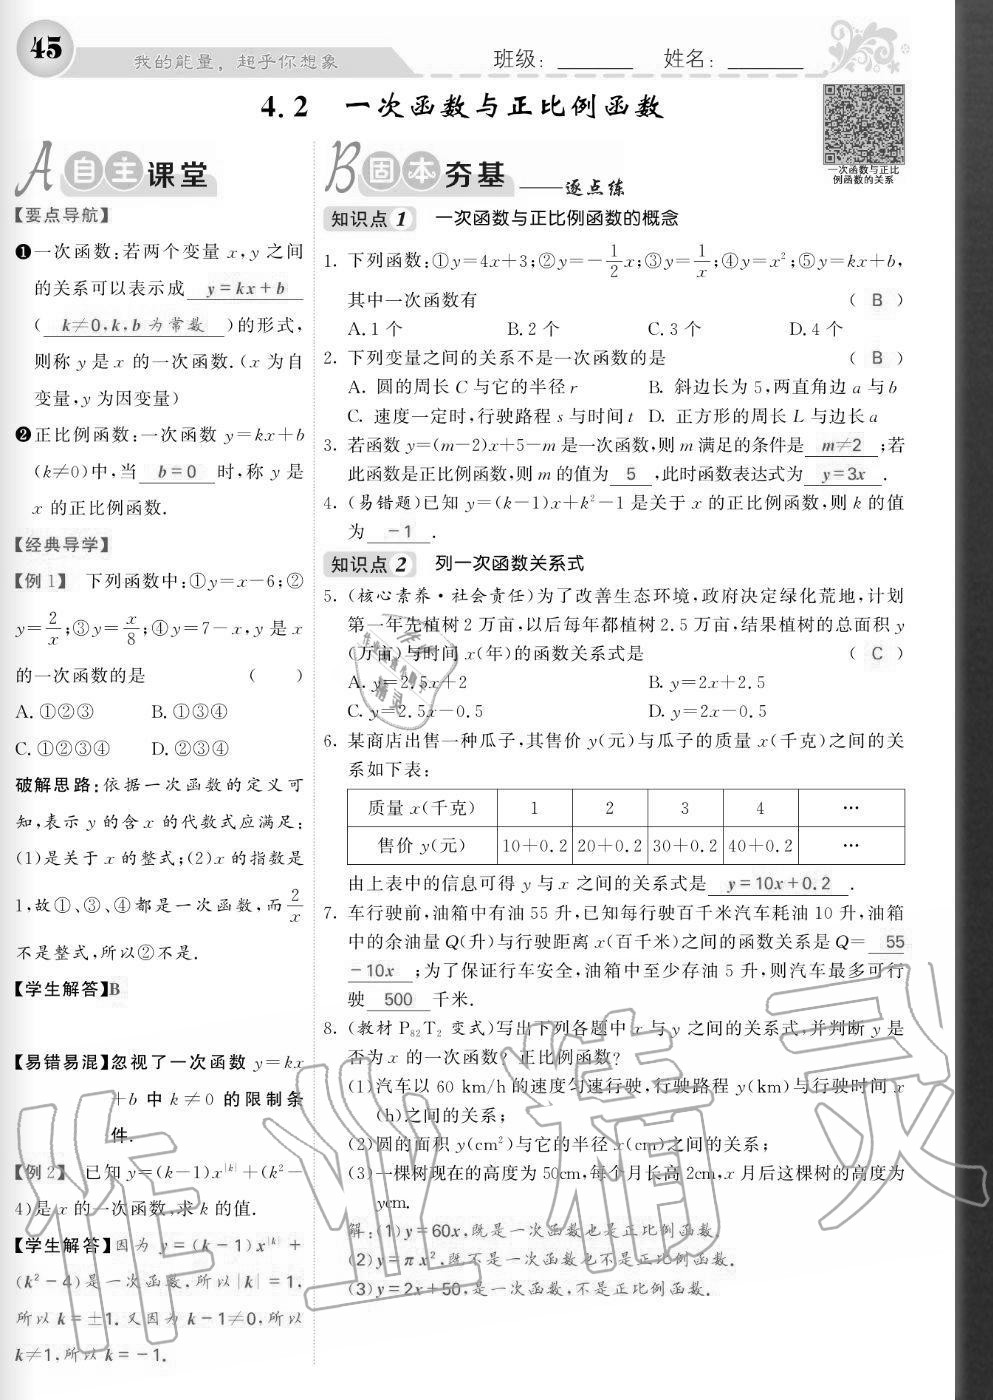 45
我的能量，超乎你想象
班级：________ 姓名：________
4.2 一次函数与正比例函数
一次函数与正比
例函数的关系
A 自主课堂
【要点导航】
❶一次函数：若两个变量 x,y 之间
的关系可以表示成 y=kx+b
( k≠0,k,b 为常数 )的形式,
则称 y 是 x 的一次函数.(x 为自
变量,y 为因变量)
❷正比例函数：一次函数 y=kx+b
(k≠0)中,当 b=0 时,称 y 是
x 的正比例函数.
【经典导学】
【例 1】 下列函数中:①y=x-6;②
y=2/x;③y=x/8;④y=7-x,y 是 x
的一次函数的是 ( )
A.①②③ B.①③④
C.①②③④ D.②③④
破解思路：依据一次函数的定义可
知,表示 y 的含 x 的代数式应满足:
(1)是关于 x 的整式;(2)x 的指数是
1,故①、③、④都是一次函数,而2/x
不是整式,所以②不是.
【学生解答】B
【易错易混】忽视了一次函数 y=kx
+b 中 k≠0 的限制条
件.
【例 2】 已知 y=(k-1)x^|k|+(k²-
4)是 x 的一次函数,求 k 的值.
【学生解答】因为 y=(k-1)x^|k|+
(k²-4)是一次函数,所以|k|=1,
所以 k=±1.又因为 k-1≠0,所以
k≠1,所以 k=-1.
B 固本夯基 ——逐点练
知识点 1 一次函数与正比例函数的概念
1. 下列函数:①y=4x+3;②y=-1/2x;③y=1/x;④y=x²;⑤y=kx+b,
其中一次函数有 ( B )
A.1 个 B.2 个 C.3 个 D.4 个
2. 下列变量之间的关系不是一次函数的是 ( B )
A. 圆的周长 C 与它的半径 r B. 斜边长为 5,两直角边 a 与 b
C. 速度一定时,行驶路程 s 与时间 t D. 正方形的周长 L 与边长 a
3. 若函数 y=(m-2)x+5-m 是一次函数,则 m 满足的条件是 m≠2 ;若
此函数是正比例函数,则 m 的值为 5 ,此时函数表达式为 y=3x .
4. (易错题)已知 y=(k-1)x+k²-1 是关于 x 的正比例函数,则 k 的值
为 -1 .
知识点 2 列一次函数关系式
5. (核心素养·社会责任)为了改善生态环境,政府决定绿化荒地,计划
第一年先植树 2 万亩,以后每年都植树 2.5 万亩,结果植树的总面积 y
(万亩)与时间 x(年)的函数关系式是 ( C )
A. y=2.5x+2 B. y=2x+2.5
C. y=2.5x-0.5 D. y=2x-0.5
6. 某商店出售一种瓜子,其售价 y(元)与瓜子的质量 x(千克)之间的关
系如下表:
质量 x(千克) 1 2 3 4 …
售价 y(元) 10+0.2 20+0.2 30+0.2 40+0.2 …
由上表中的信息可得 y 与 x 之间的关系式是 y=10x+0.2 .
7. 车行驶前,油箱中有油 55 升,已知每行驶百千米汽车耗油 10 升,油箱
中的余油量 Q(升)与行驶距离 x(百千米)之间的函数关系是 Q= 55
-10x ;为了保证行车安全,油箱中至少存油 5 升,则汽车最多可行
驶 500 千米.
8. (教材 P₈₂T₂ 变式)写出下列各题中 x 与 y 之间的关系式,并判断 y 是
否为 x 的一次函数? 正比例函数?
(1)汽车以 60 km/h 的速度匀速行驶,行驶路程 y(km)与行驶时间 x
(h)之间的关系;
(2)圆的面积 y(cm²)与它的半径 x(cm)之间的关系;
(3)一棵树现在的高度为 50cm,每个月长高 2cm,x 月后这棵树的高度为
ycm.
解:(1)y=60x,既是一次函数也是正比例函数.
(2)y=πx²,既不是一次函数也不是正比例函数.
(3)y=2x+50,是一次函数,不是正比例函数.
作业精灵